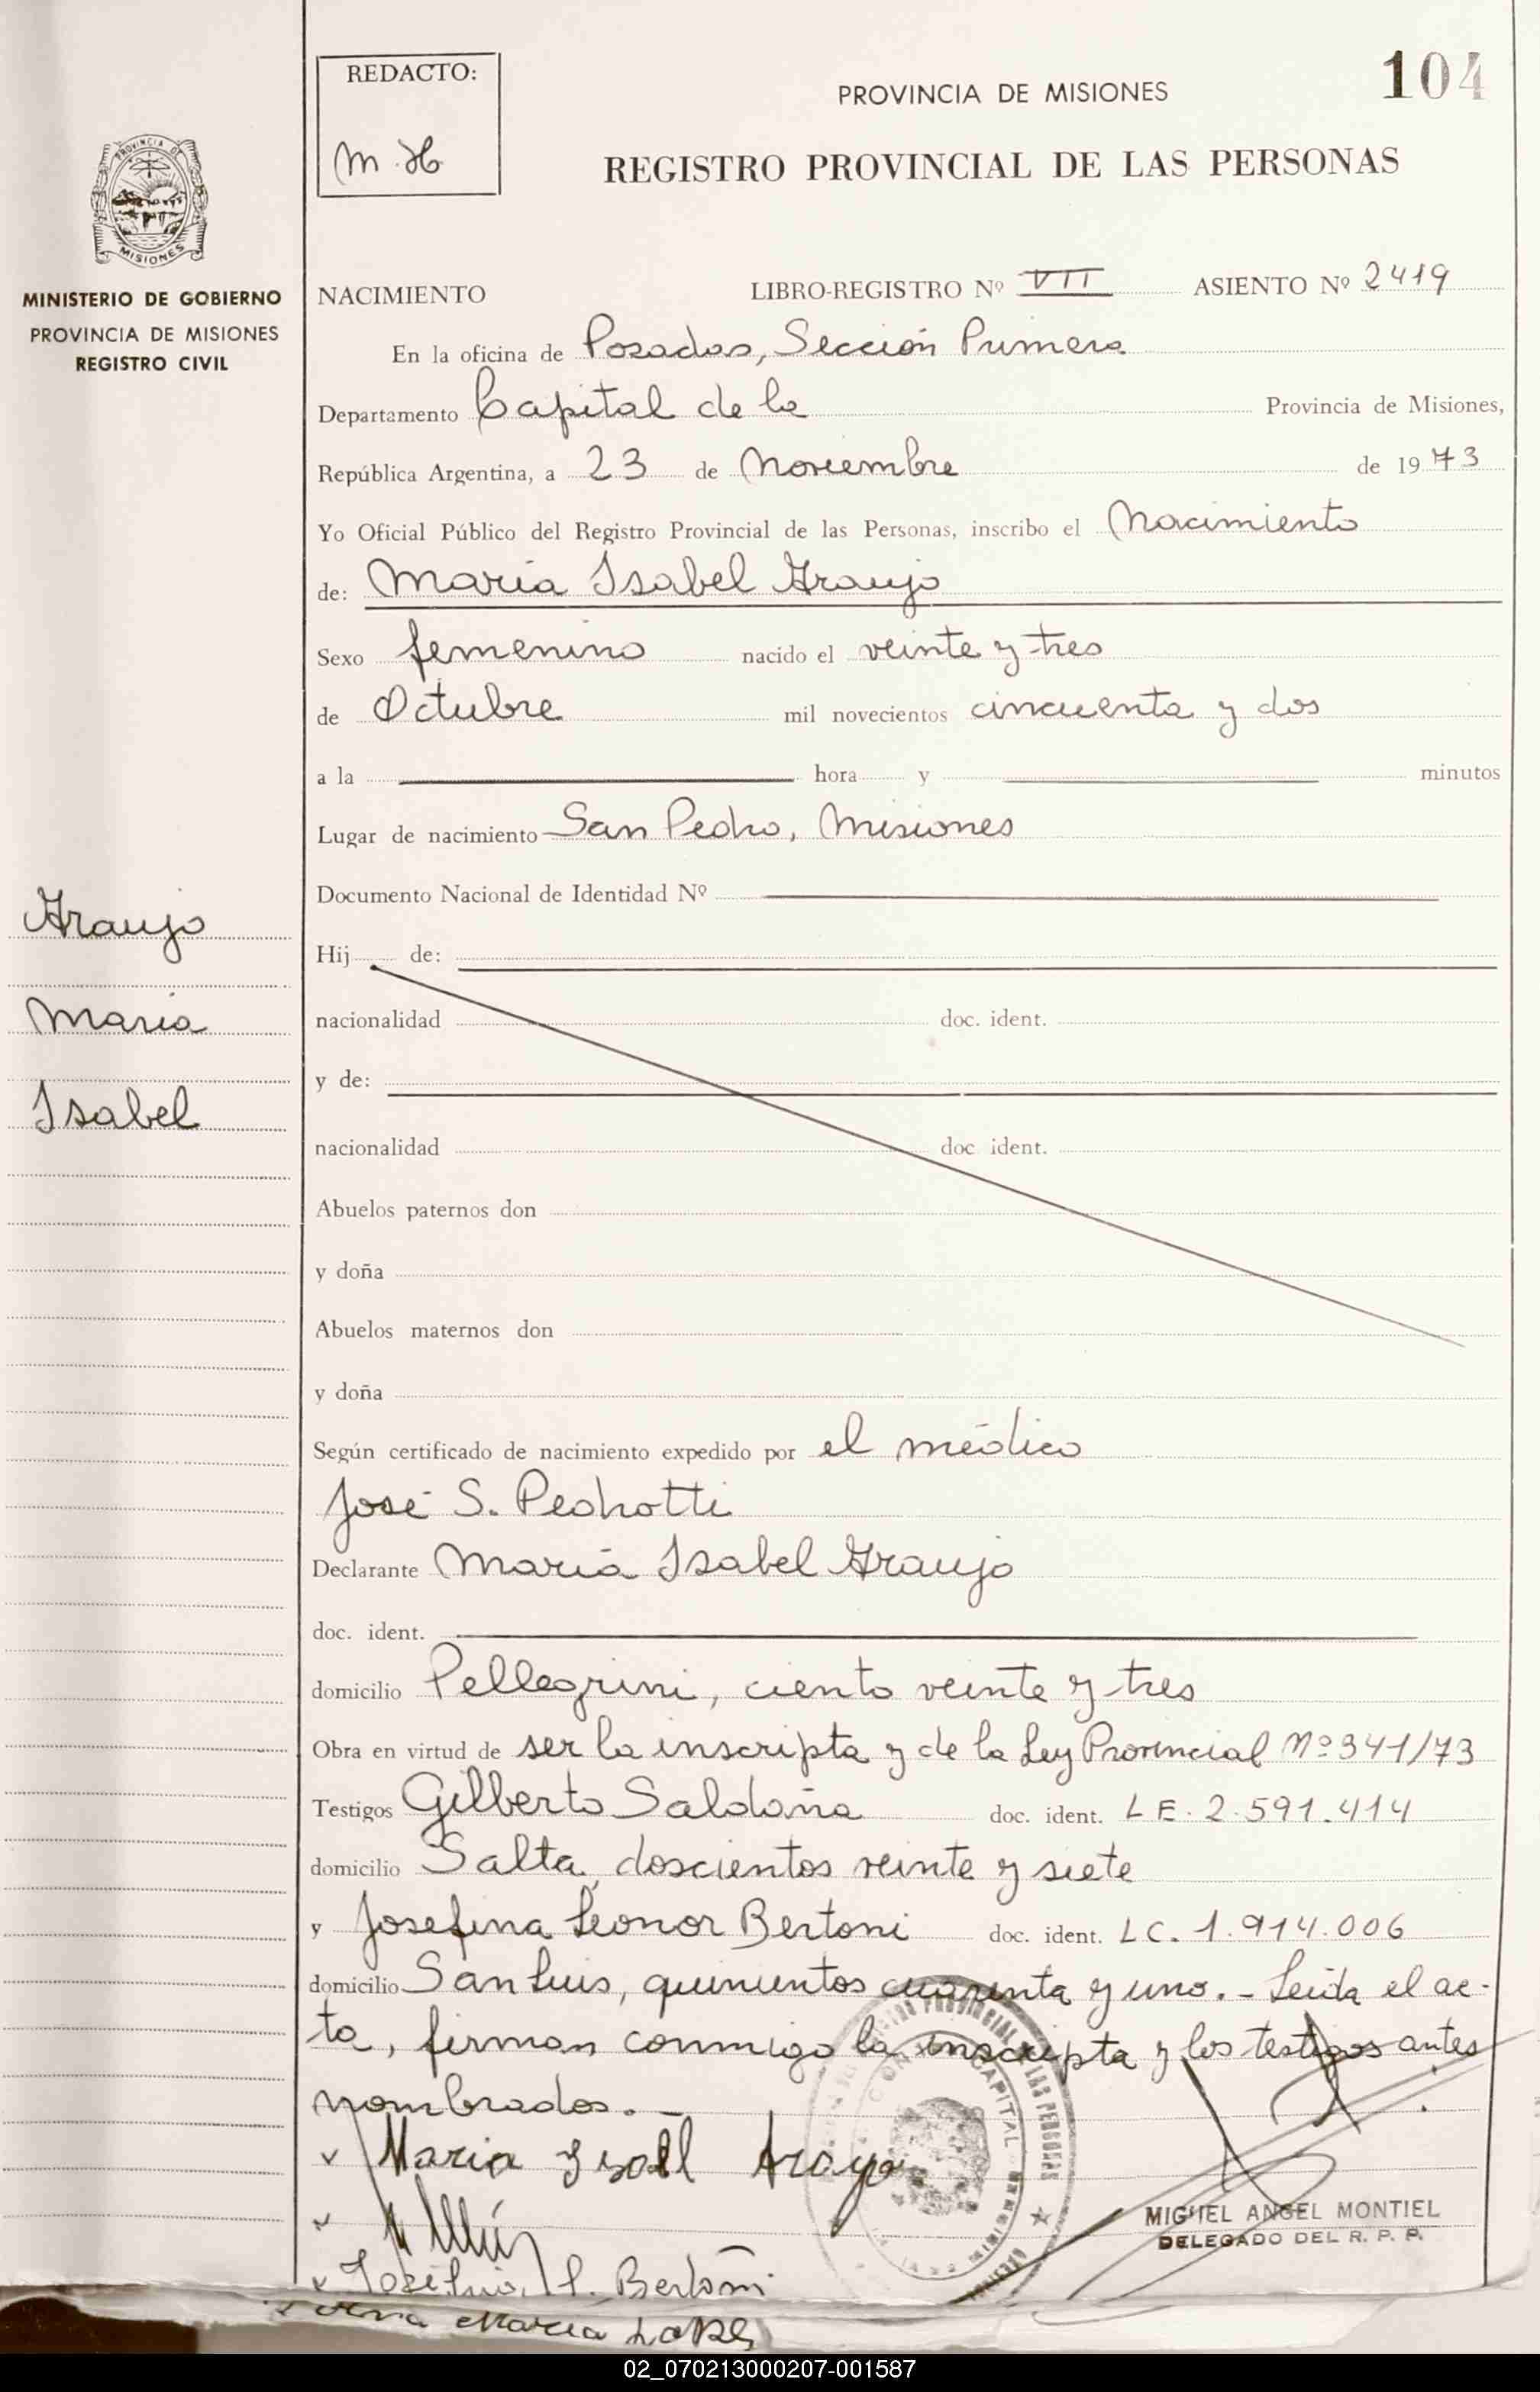 104
REDACTO:
M. H.
PROVINCIA DE MISIONES
REGISTRO PROVINCIAL DE LAS PERSONAS
PROVINCIA DE
MISIONES
MINISTERIO DE GOBIERNO
PROVINCIA DE MISIONES
REGISTRO CIVIL
NACIMIENTO LIBRO-REGISTRO Nº VII ASIENTO Nº 2419
En la oficina de Posadas, Sección Primera
Departamento Capital de la Provincia de Misiones,
República Argentina, a 23 de Noviembre de 1973
Yo Oficial Público del Registro Provincial de las Personas, inscribo el Nacimiento
de: María Isabel Araujo
Sexo femenino nacido el veinte y tres
de Octubre mil novecientos cincuenta y dos
a la hora y minutos
Lugar de nacimiento San Pedro, Misiones
Documento Nacional de Identidad Nº
Araujo
María
Isabel
Hij de:
nacionalidad doc. ident.
y de:
nacionalidad doc ident.
Abuelos paternos don
y doña
Abuelos maternos don
y doña
Según certificado de nacimiento expedido por el médico
José S. Pedrotti
Declarante María Isabel Araujo
doc. ident.
domicilio Pellegrini, ciento veinte y tres
Obra en virtud de ser la inscripta y de la Ley Provincial Nº 341/73
Testigos Gilberto Saldaña doc. ident. L E. 2.591.414
domicilio Salta, doscientos veinte y siete
y Josefina Leonor Bertoni doc. ident. L C. 1.914.006
domicilio San Luis, quinientos cuarenta y uno. - Leída el ac-
ta, firman conmigo la inscripta y los testigos antes
nombrados. -
Maria Ysabel Araujo
MIGUEL ANGEL MONTIEL
DELEGADO DEL R. P. P.
Josefina L. Bertoni
Maria
02_070213000207-001587